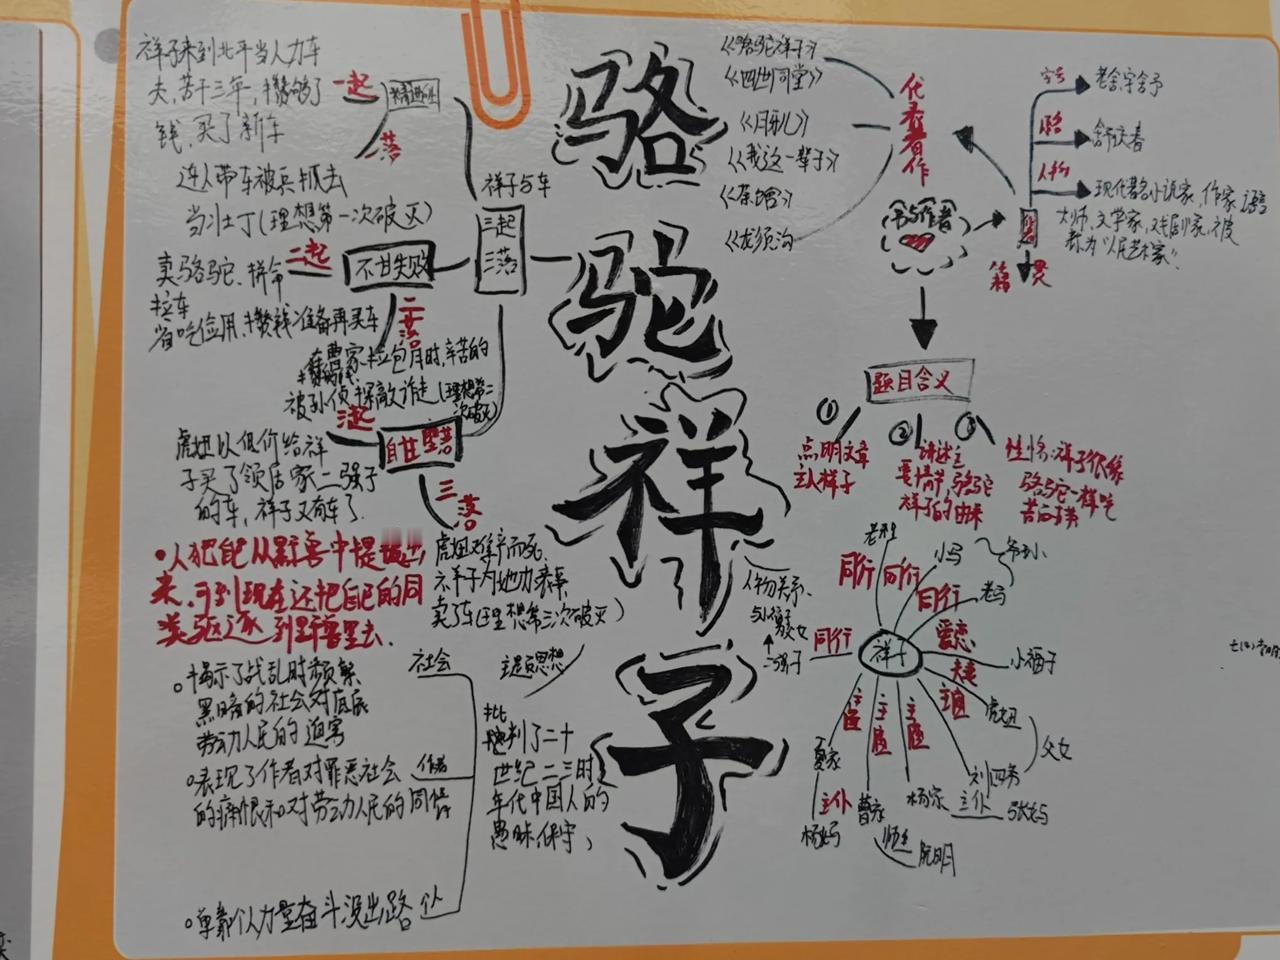 骆
驼
祥
子
祥子来到北平当人力车
夫,苦干三年,攒够了
钱,买了新车
一起
一落
连人带车被兵抓去
当壮丁(理想第一次破灭)
祥子与车
三起
三落
卖骆驼、拼命
拉车
省吃俭用,攒钱准备再买车
二起
不甘失败
二落
在曹家拉包月时,辛苦的
被孙侦探敲诈走(理想第二
次破灭)
三起
自甘堕落
虎妞以低价给祥
子买了领居家二强子
的车,祥子又有车了.
三落
虎妞难产而死,
祥子为她办丧事,
卖了车(理想第三次破灭)
人把自己从野兽中提拔出
来,可到现在还把自己的同
类驱逐到野兽里去.
主题思想
社会
揭示了战乱时频繁
黑暗的社会对底层
劳动人民的迫害
作者
表现了作者对罪恶社会
的痛恨和对劳动人民的同情
单靠个人力量奋斗没出路
个人
批
批判了二十
世纪二三时
年代中国人的
愚昧、保守,
《骆驼祥子》
《四世同堂》
《月牙儿》
《我这一辈子》
《茶馆》
《龙须沟
代表著作
书与作者
作者
字号
老舍,字舍予
原名
舒庆春
人物
现代著名小说家,作家,语言
大师、文学家,戏剧家,被
称为“人民艺术家”.
籍贯
题目含义
①
点明文章
主人样子
②
讲述主
要情节,骆驼
祥子的由来
③
性格:祥子很像
骆驼一样吃
苦耐劳
人物关系
祥子
同行
老程
同行
小马
爷孙
同行
老马
爱恋
小福子
夫妻
虎妞
父女
主雇
刘四爷
主雇
杨家
主仆
张妈
主雇
曹家
师生
阮明
主雇
夏家
主仆
杨妈
同行
二强子
与小福子父女